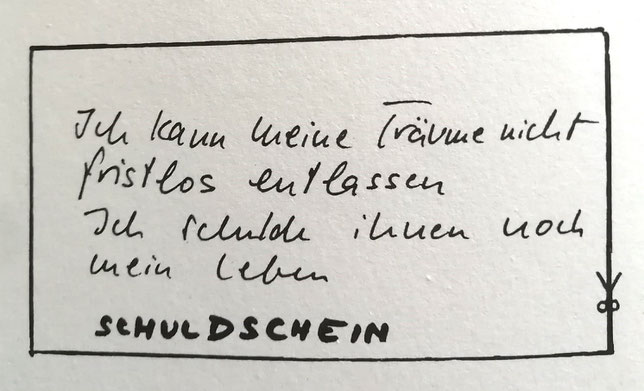 Ich kann meine Träume nicht
fristlos entlassen
Ich schulde ihnen noch
mein Leben
SCHULDSCHEIN